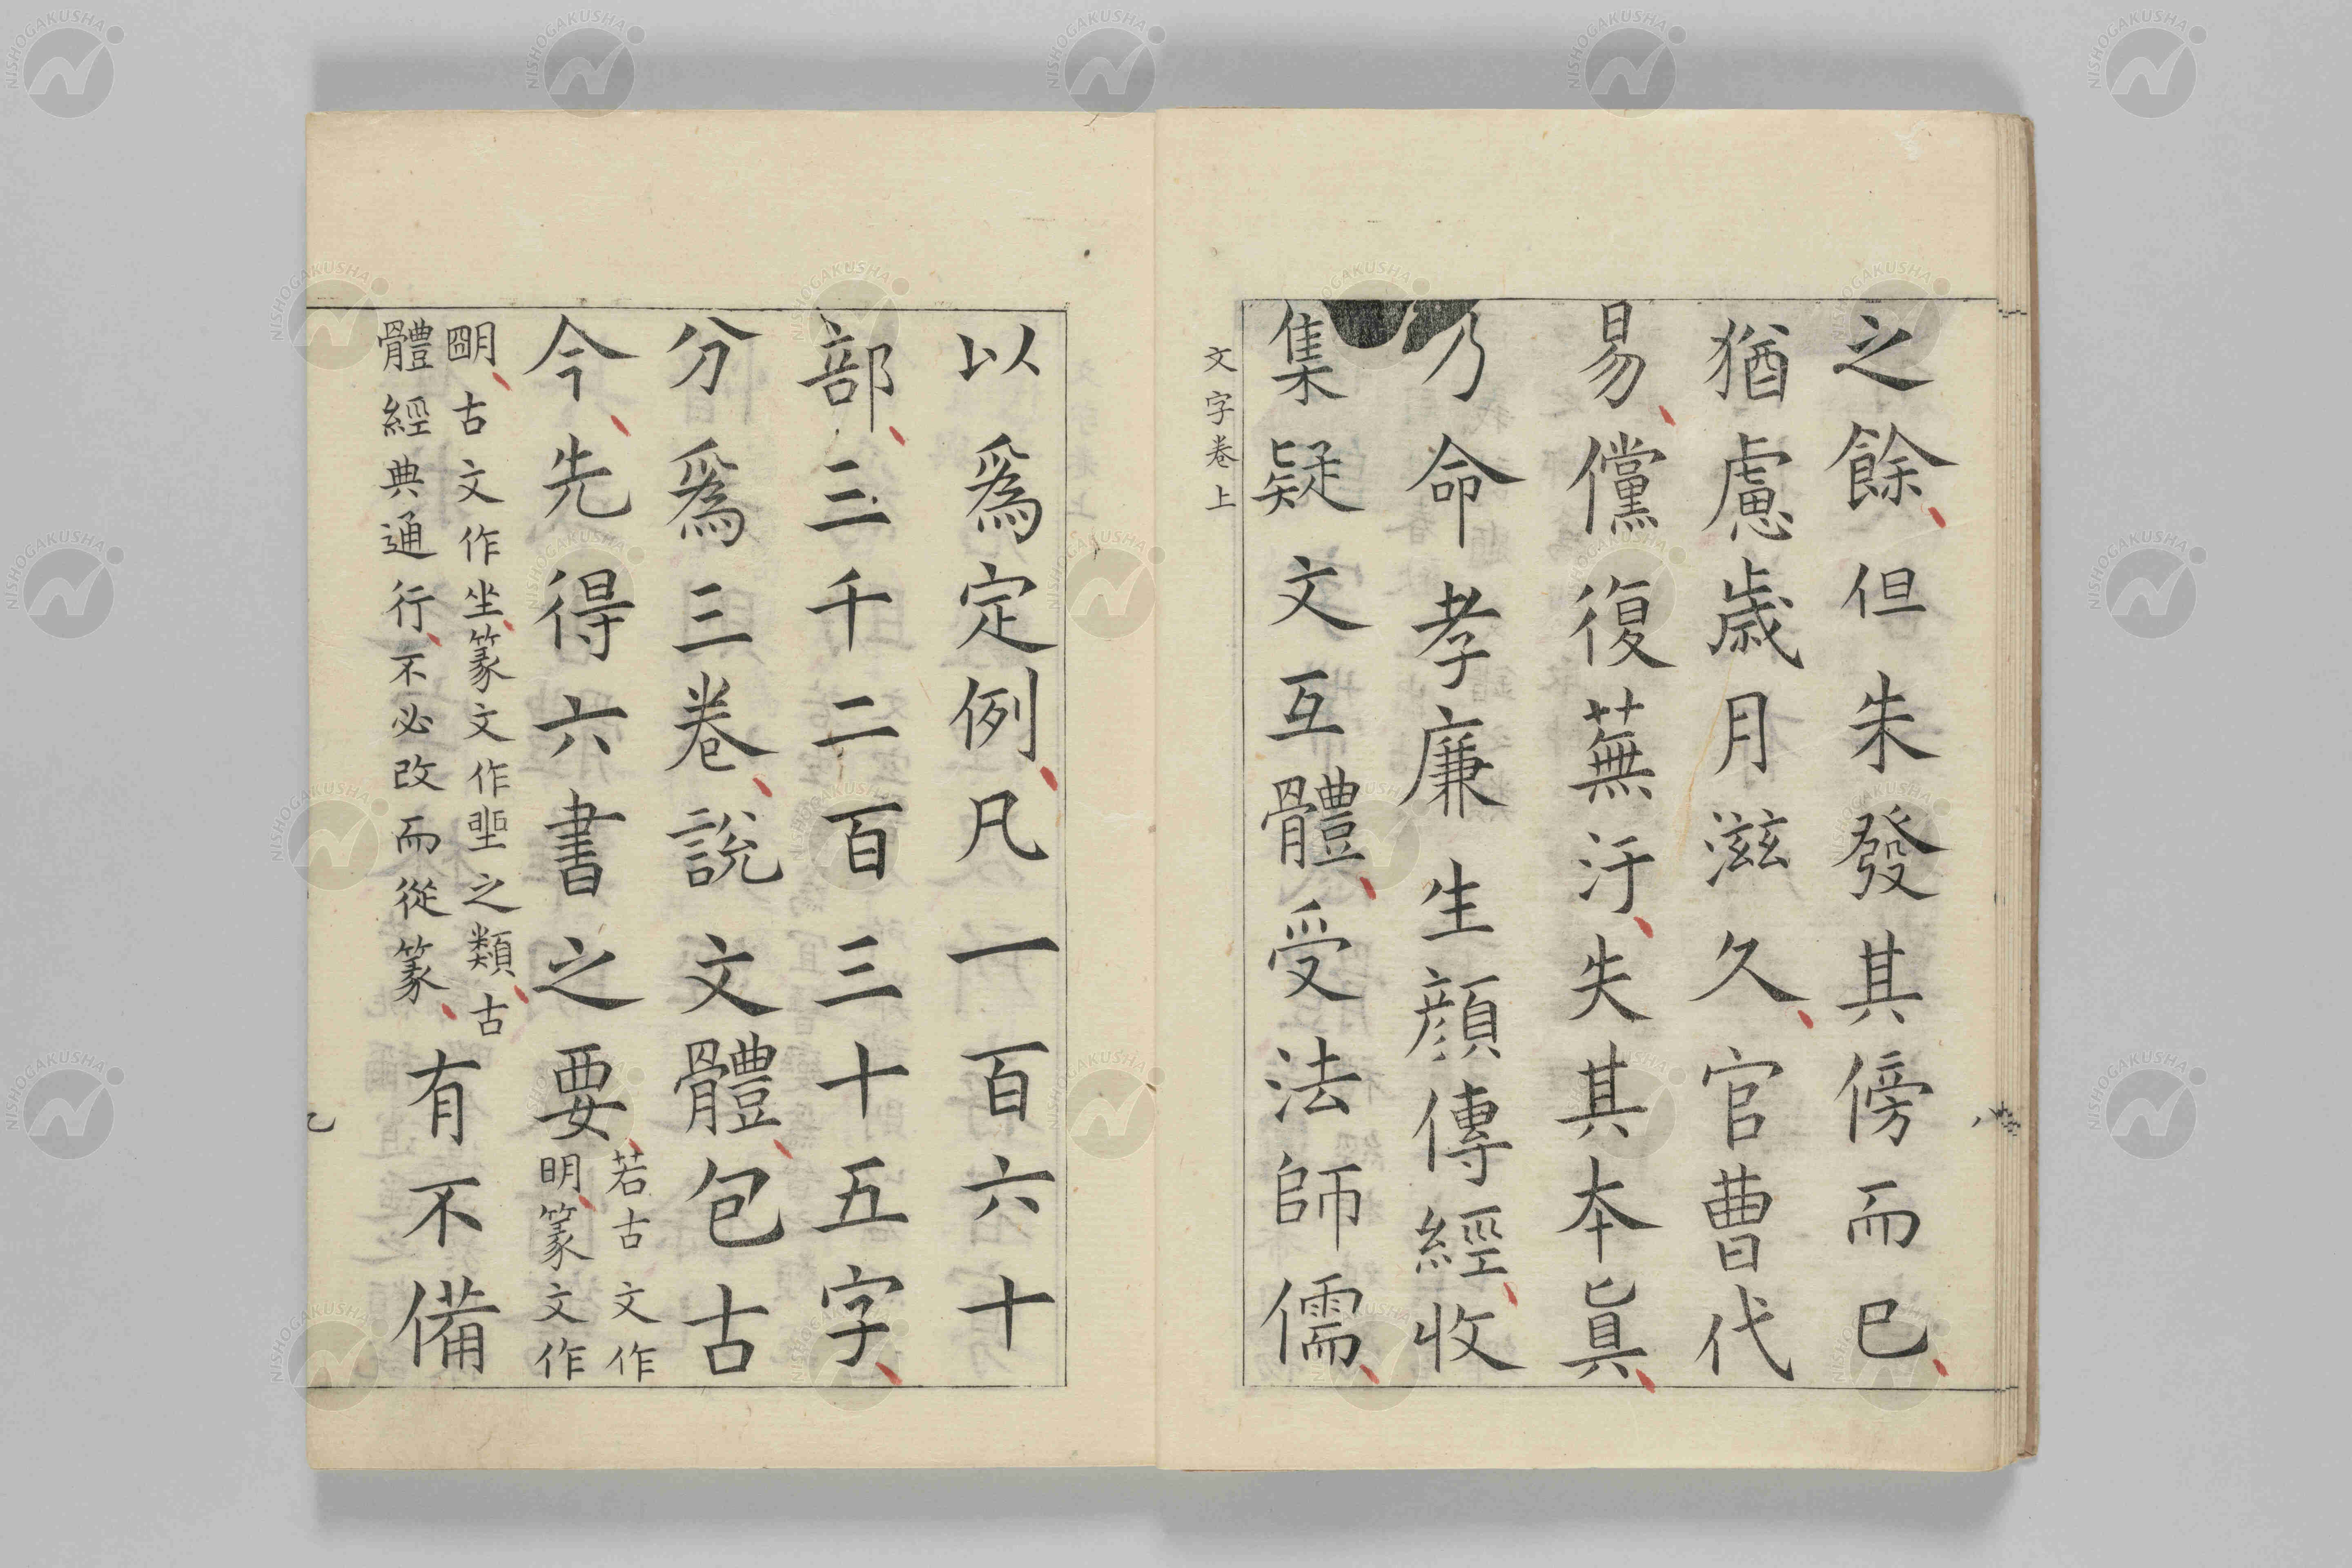 之餘但朱發其傍而已
猶慮歳月滋久官曹代
易儻復蕪汙失其本眞
乃命孝廉生顔傳經收
集疑文互體受法師儒
文字卷上
以爲定例凡一百六十
部三千二百三十五字
分爲三卷說文體包古
今先得六書之要若古文作
明篆文作
朙古文作坐篆文作聖之類古
體經典通行不必改而從篆
有不備
NISHOGAKUSHA